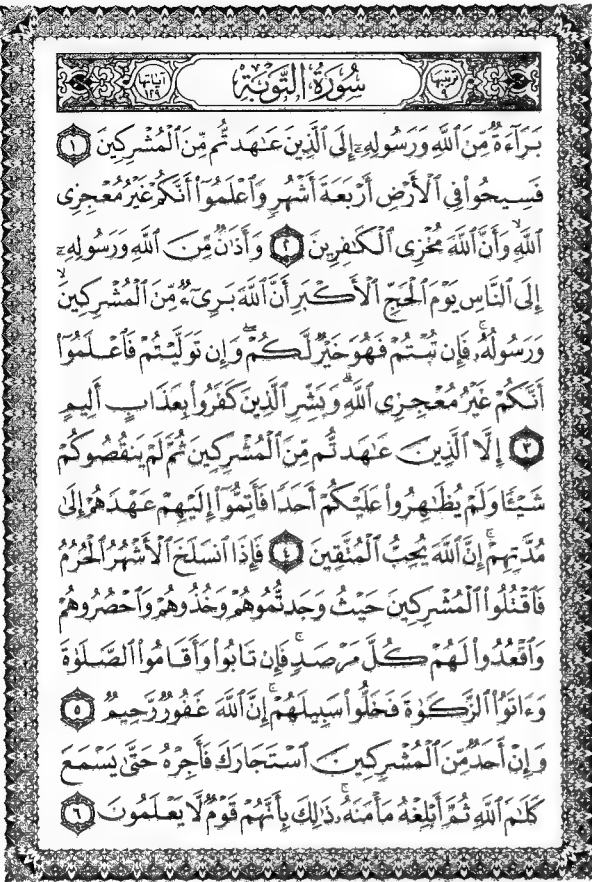 ترتيبها ٩ سُورَةُ التَّوْبَةِ آياتها ١٢٩
بَرَآءَةٌ مِّنَ ٱللَّهِ وَرَسُولِهِۦٓ إِلَى ٱلَّذِينَ عَٰهَدتُّم مِّنَ ٱلْمُشْرِكِينَ ١
فَسِيحُوا۟ فِى ٱلْأَرْضِ أَرْبَعَةَ أَشْهُرٍ وَٱعْلَمُوٓا۟ أَنَّكُمْ غَيْرُ مُعْجِزِى
ٱللَّهِۙ وَأَنَّ ٱللَّهَ مُخْزِى ٱلْكَٰفِرِينَ ٢ وَأَذَٰنٌ مِّنَ ٱللَّهِ وَرَسُولِهِۦٓ
إِلَى ٱلنَّاسِ يَوْمَ ٱلْحَجِّ ٱلْأَكْبَرِ أَنَّ ٱللَّهَ بَرِىٓءٌ مِّنَ ٱلْمُشْرِكِينَۙ
وَرَسُولُهُۥۚ فَإِن تُبْتُمْ فَهُوَ خَيْرٌ لَّكُمْۖ وَإِن تَوَلَّيْتُمْ فَٱعْلَمُوٓا۟
أَنَّكُمْ غَيْرُ مُعْجِزِى ٱللَّهِۗ وَبَشِّرِ ٱلَّذِينَ كَفَرُوا۟ بِعَذَابٍ أَلِيمٍ
٣ إِلَّا ٱلَّذِينَ عَٰهَدتُّم مِّنَ ٱلْمُشْرِكِينَ ثُمَّ لَمْ يَنقُصُوكُمْ
شَيْـًٔا وَلَمْ يُظَٰهِرُوا۟ عَلَيْكُمْ أَحَدًا فَأَتِمُّوٓا۟ إِلَيْهِمْ عَهْدَهُمْ إِلَىٰ
مُدَّتِهِمْۚ إِنَّ ٱللَّهَ يُحِبُّ ٱلْمُتَّقِينَ ٤ فَإِذَا ٱنسَلَخَ ٱلْأَشْهُرُ ٱلْحُرُمُ
فَٱقْتُلُوا۟ ٱلْمُشْرِكِينَ حَيْثُ وَجَدتُّمُوهُمْ وَخُذُوهُمْ وَٱحْصُرُوهُمْ
وَٱقْعُدُوا۟ لَهُمْ كُلَّ مَرْصَدٍۚ فَإِن تَابُوا۟ وَأَقَامُوا۟ ٱلصَّلَوٰةَ
وَءَاتَوُا۟ ٱلزَّكَوٰةَ فَخَلُّوا۟ سَبِيلَهُمْۚ إِنَّ ٱللَّهَ غَفُورٌ رَّحِيمٌ ٥
وَإِنْ أَحَدٌ مِّنَ ٱلْمُشْرِكِينَ ٱسْتَجَارَكَ فَأَجِرْهُ حَتَّىٰ يَسْمَعَ
كَلَٰمَ ٱللَّهِ ثُمَّ أَبْلِغْهُ مَأْمَنَهُۥۚ ذَٰلِكَ بِأَنَّهُمْ قَوْمٌ لَّا يَعْلَمُونَ ٦